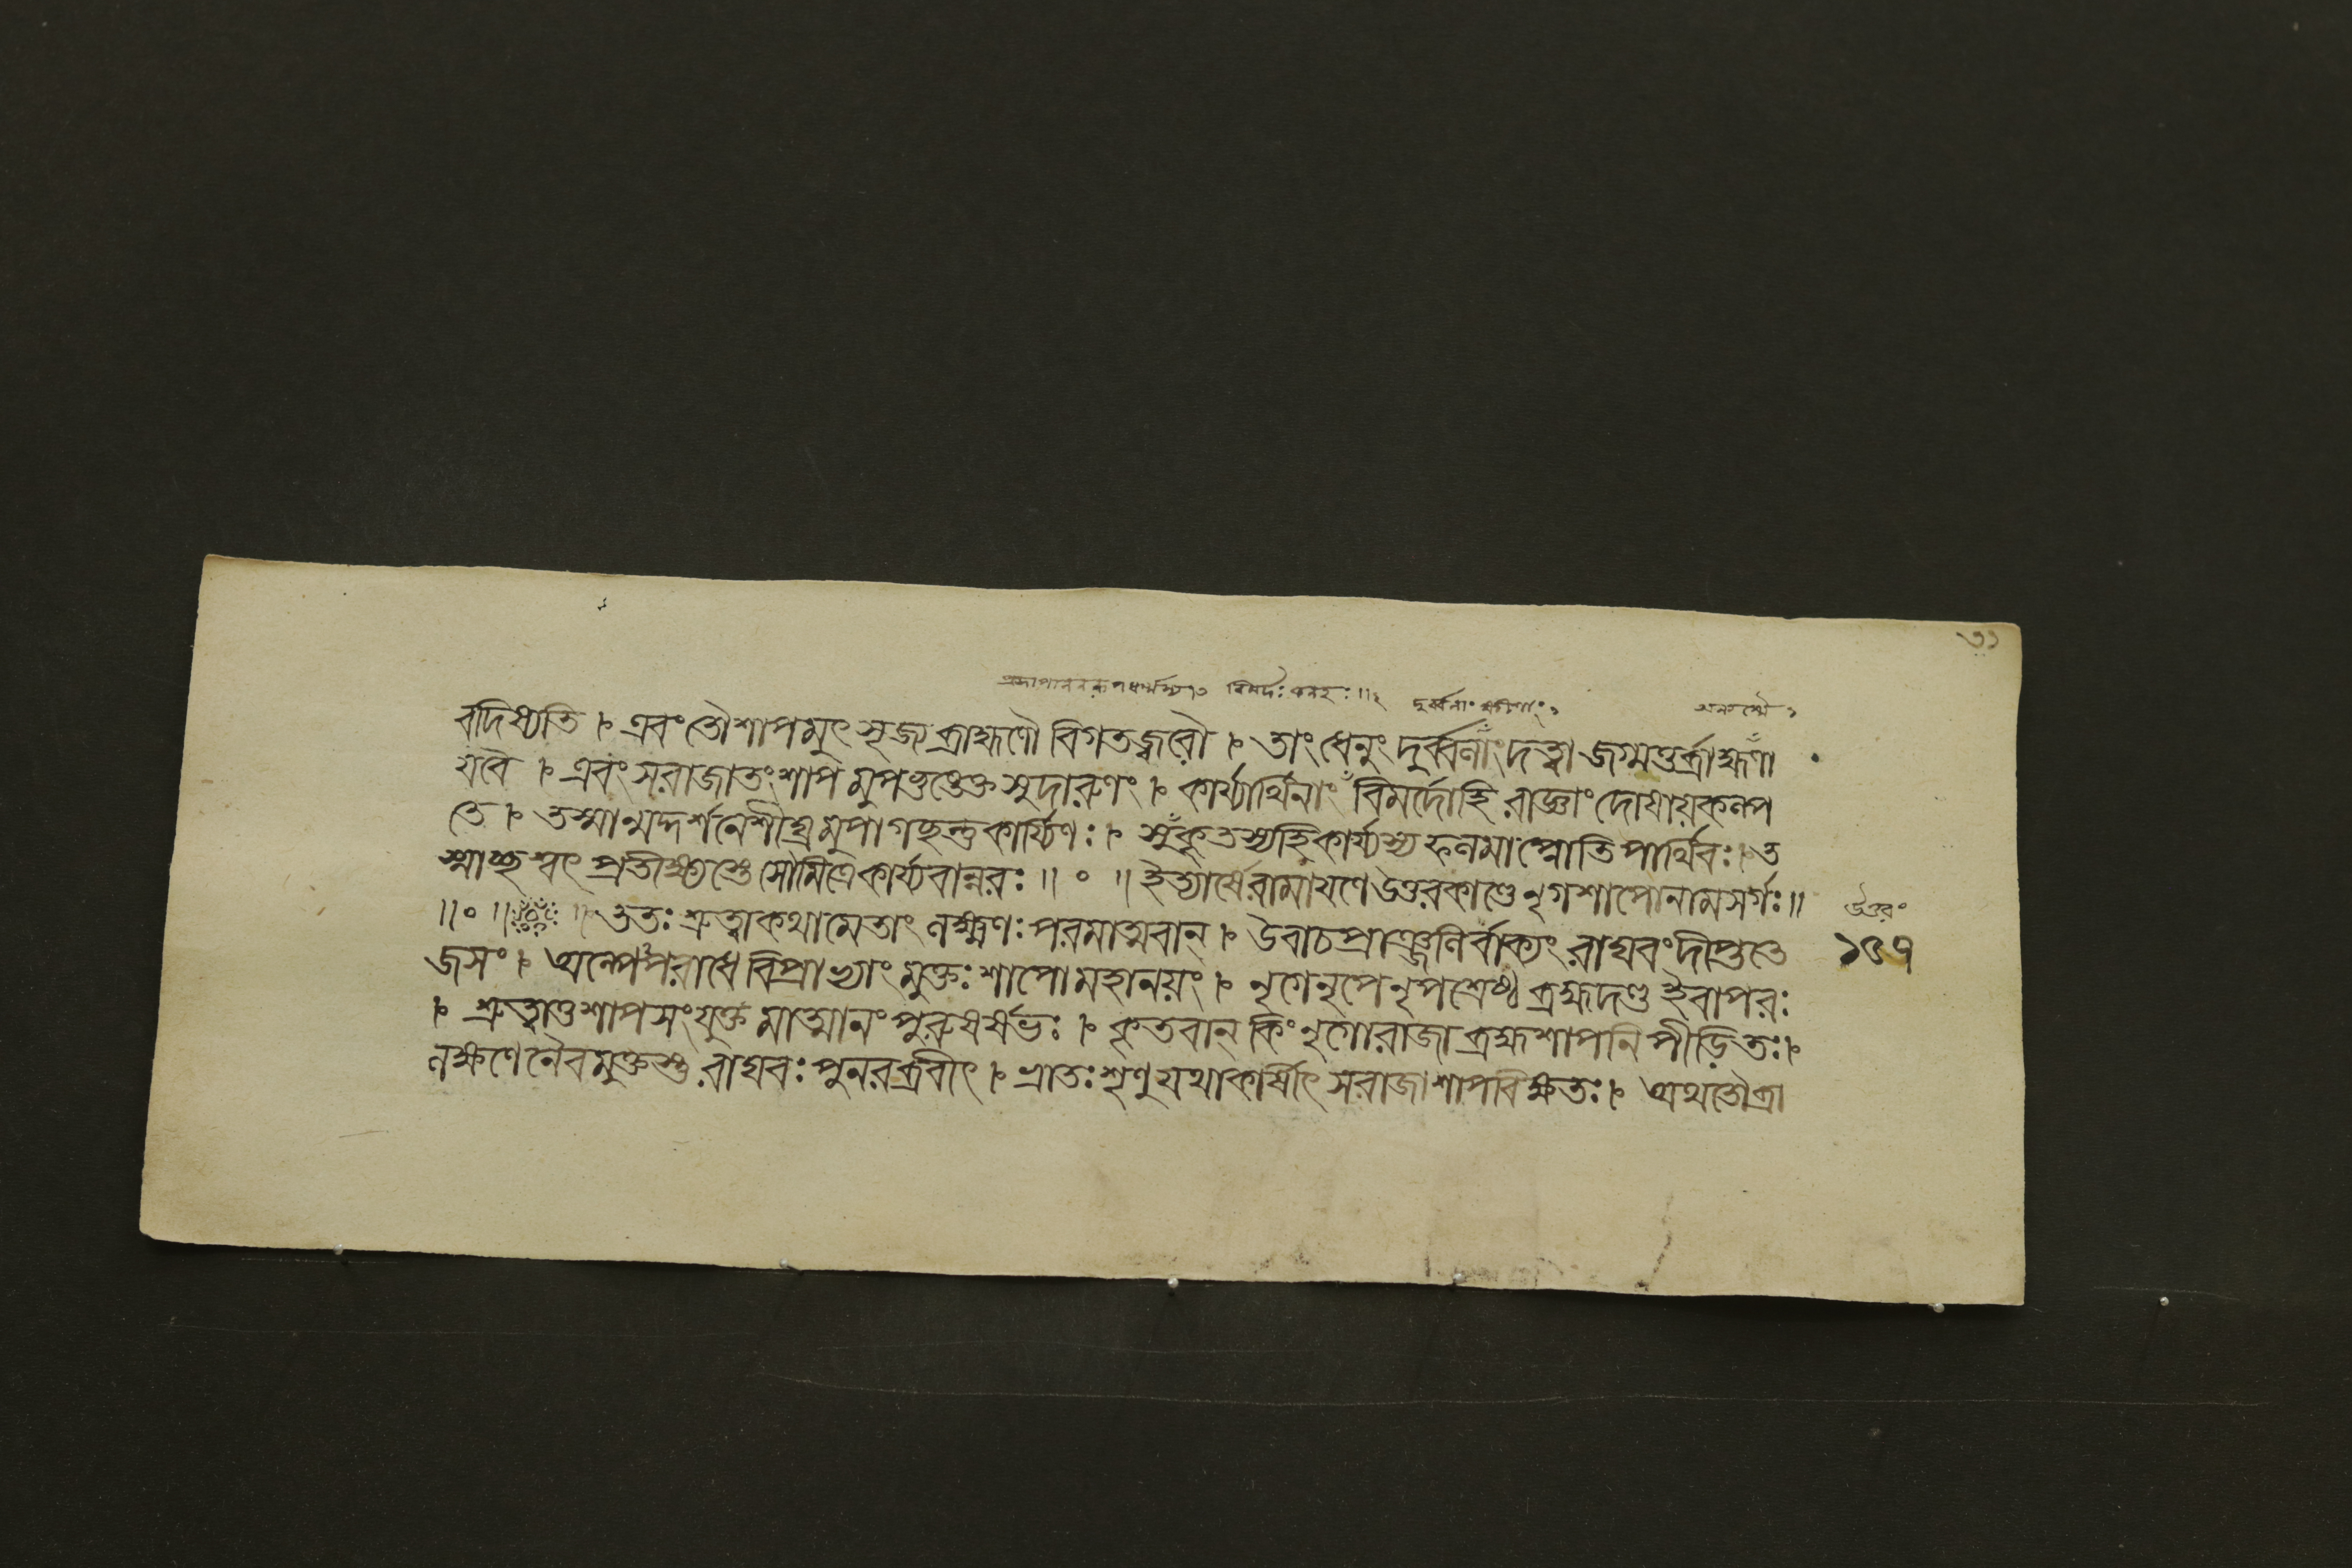 ৩১
বদিষ্যতি । এবং তৌশাপমুৎসৃজ্য ব্রাহ্মণৌ বিগতজ্বরৌ । তাং ধেনুং দুর্ব্বলাংদত্ত্বা জগ্মতুর্ব্রাহ্মণা
যবৈ । এবং সরাজাতংশাপমুপভুঙেক্ত সুদারুণং । কার্য্যার্থিনাং বিমর্দোহি রাজ্ঞাং দোষায়কল্প
তে । তস্মান্মদ্দর্শনেশীঘ্রমুপাগছন্তুকার্য্যিণঃ । সুকৃতস্যহিকার্য্যস্য ফলমাপ্নোতিপার্থিবঃ । ত
স্মাচ্ছ্বৎ প্রতীক্ষ্যস্তে সৌমিত্রে কার্য্যবান্নরঃ ॥ ० ॥ ইত্যার্ষেরামায়ণে উত্তরকাণ্ডে নৃগশাপোনামসর্গঃ ॥
॥ ० ॥ ॥ ততঃ শ্রুত্বাকথামেতাং লক্ষ্মণঃ পরমাত্মবান্ । উবাচপ্রাঞ্জলির্বাক্যং রাঘবংদীপ্ততে
জসং । অল্পেপরাধে বিপ্রাভ্যাং মুক্তঃ শাপোমহানয়ং । নৃগেনৃপেনৃপশ্রেষ্ঠ ব্রহ্মদণ্ড ইবাপরঃ
। শ্রুত্বাতুশাপসংযুক্তমাত্মানং পুরুষর্ষভঃ । কৃতবান্ কিং নৃগোরাজা ব্রহ্মশাপনিপীড়িতঃ ।
লক্ষ্মণেনৈবমুক্তস্তু রাঘবঃ পুনরব্রবীৎ । ভ্রাতঃ শৃণু যথাকার্ষীৎ সরাজাশাপবিক্ষতঃ । অথতৌব্রা
উত্তরং
১৩৭